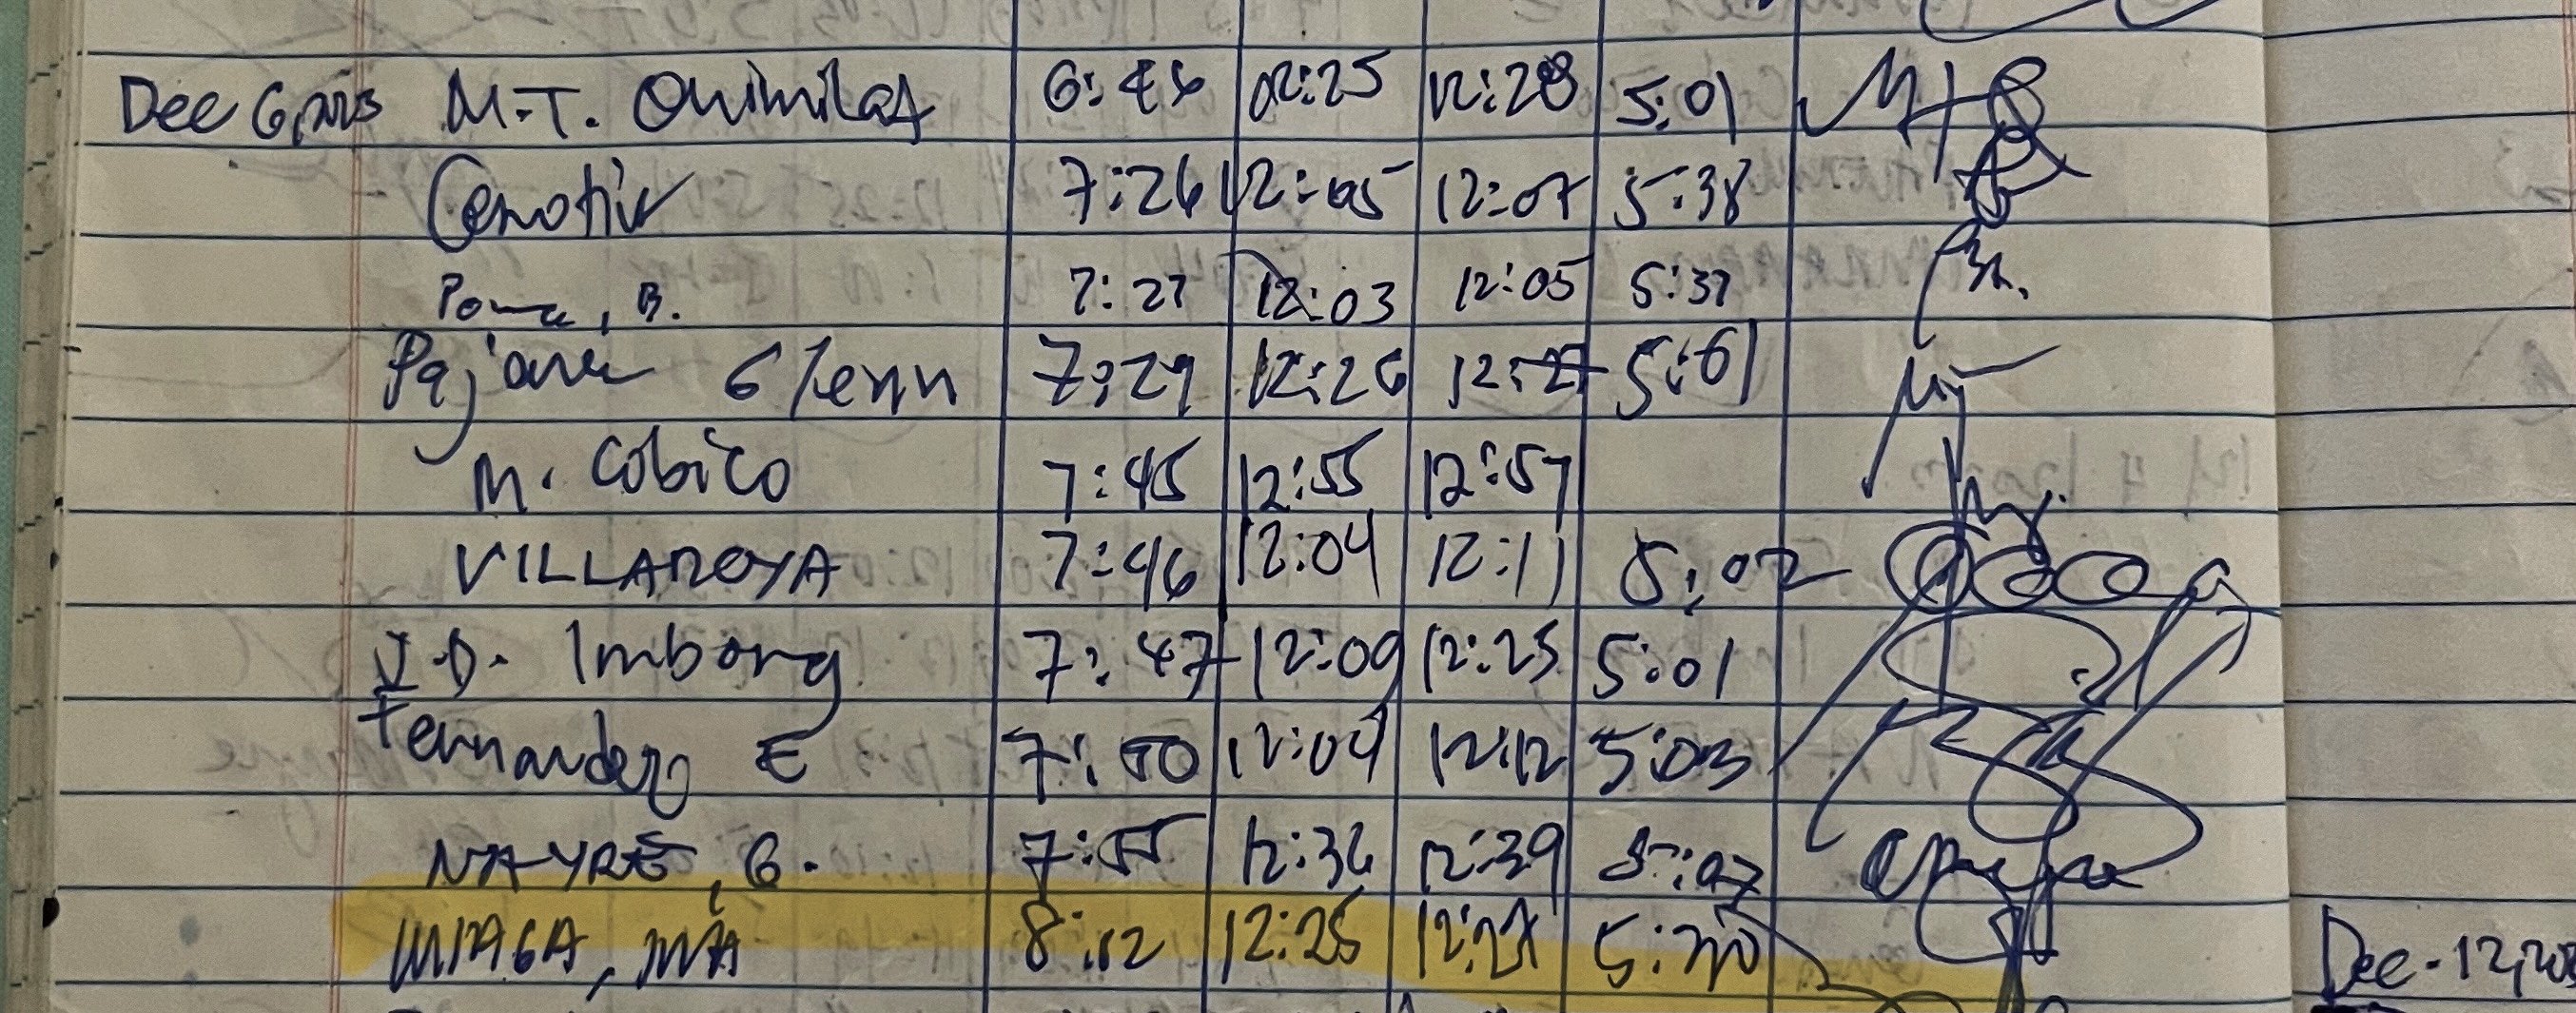 Dec 6, 2023 M.T. Quimilat 6:46 12:25 12:28 5:01
7:26 12:05 12:07 5:38
B. 7:27 12:03 12:05 5:37
Glenn 7:29 12:26 12:27 5:01
M. Cobico 7:45 12:55 12:57
VILLAROYA 7:46 12:04 12:11 5:02
J.D. Imbong 7:47 12:09 12:25 5:01
Fernandez E 7:50 12:04 12:12 5:03
NAYRE, G. 7:55 12:36 12:39 5:07
8:12 12:25 12:27
Dec - 12, 202